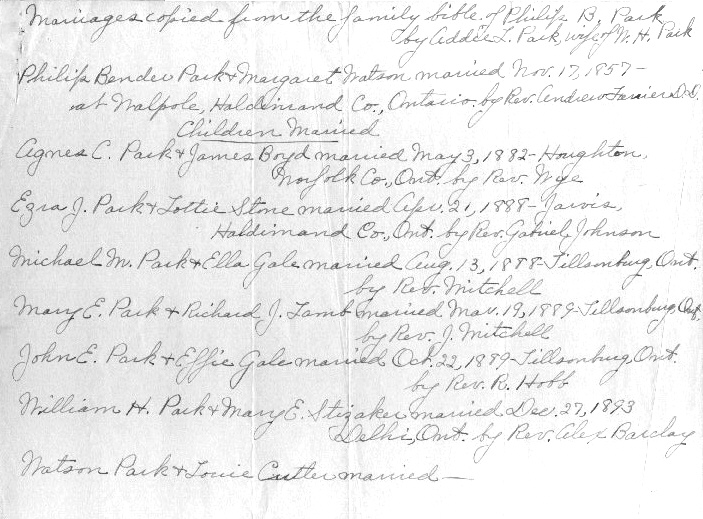 Marriages copied from the family bible of Philip B. Park
by Addie L. Park, wife of W. H. Park
Philip Bender Park & Margaret Watson married Nov. 17, 1857-
at Walpole, Haldimand Co., Ontario. by Rev. Andrew Farrier D.D.
Children Married
Agnes C. Park & James Boyd married May 3, 1882 - Houghton,
Norfolk Co., Ont. by Rev. Wye
Ezra J. Park & Lottie Stone married Apr. 21, 1888 - Jarvis,
Haldimand Co., Ont. by Rev. Gabriel Johnson
Michael M. Park & Ella Gale married Aug. 13, 1888 - Tillsonburg, Ont.
by Rev. Mitchell
Mary E. Park & Richard J. Lamb married Mar. 19, 1889 - Tillsonburg, Ont.
by Rev. J. Mitchell
John E. Park & Effie Gale married Oct. 22, 1889 - Tillsonburg, Ont.
by Rev. R. Hobb
William H. Park & Mary E. Stizaker married Dec. 27, 1893
Delhi, Ont. by Rev. Alex Barclay
Watson Park & Louie Cutler married -